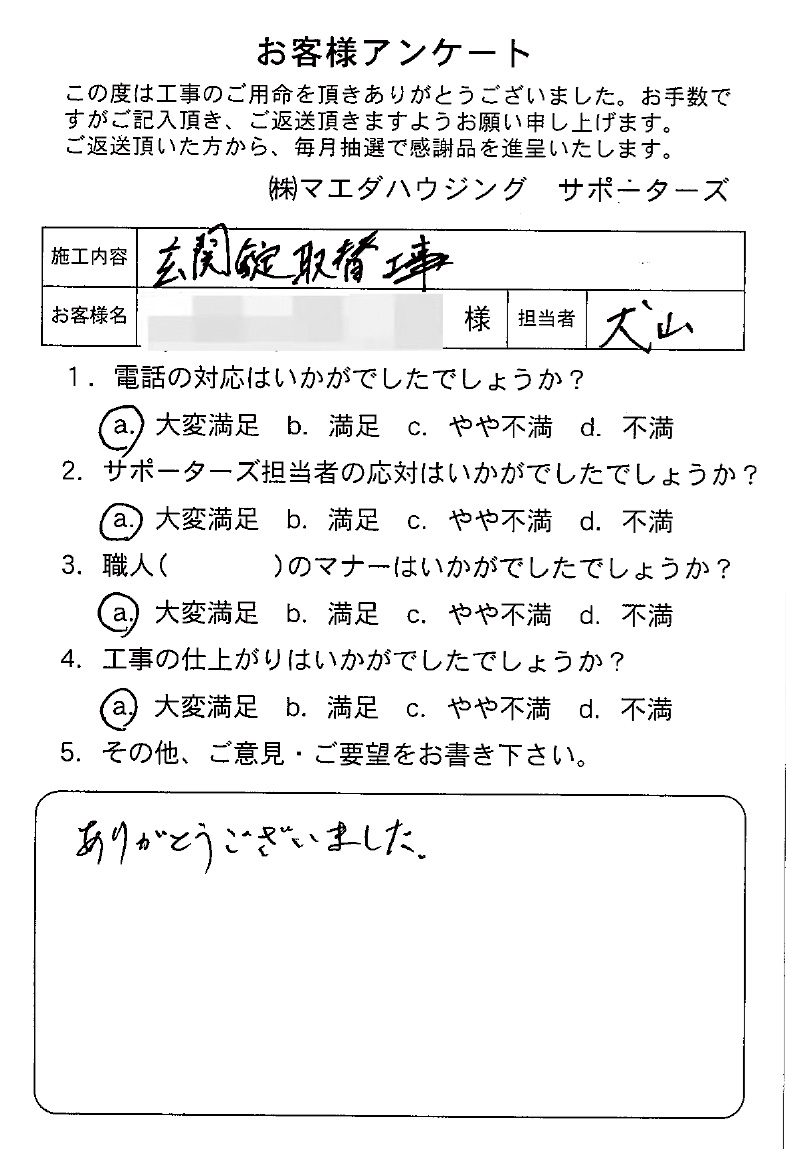 お客様アンケート
この度は工事のご用命を頂きありがとうございました。お手数で
すがご記入頂き、ご返送頂きますようお願い申し上げます。
ご返送頂いた方から、毎月抽選で感謝品を進呈いたします。
㈱マエダハウジング サポーターズ
施工内容 玄関錠取替工事
お客様名 様 担当者 犬山
1. 電話の対応はいかがでしたでしょうか?
a. 大変満足 b. 満足 c. やや不満 d. 不満
2. サポーターズ担当者の応対はいかがでしたでしょうか?
a. 大変満足 b. 満足 c. やや不満 d. 不満
3. 職人( )のマナーはいかがでしたでしょうか?
a. 大変満足 b. 満足 c. やや不満 d. 不満
4. 工事の仕上がりはいかがでしたでしょうか?
a. 大変満足 b. 満足 c. やや不満 d. 不満
5. その他、ご意見・ご要望をお書き下さい。
ありがとうございました.